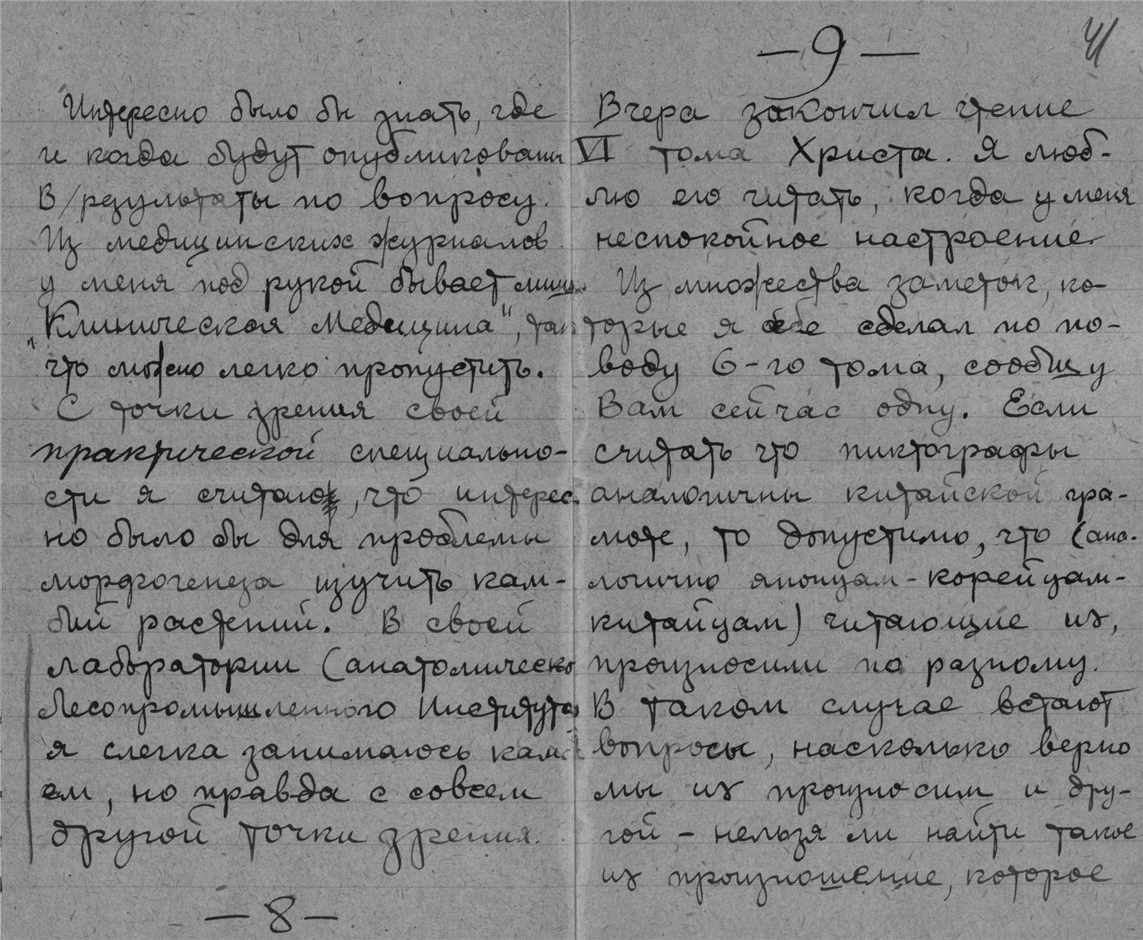 Интересно было бы знать, где
и когда будут опубликованы
В/результаты по вопросу.
Из медицинских журналов
у меня под рукой бывает лишь
„Клиническая Медицина“, так
что можно легко пропустить.
С точки зрения своей
практической специально-
сти я считаю, что интерес-
но было бы для проблемы
морфогенеза изучить кам-
бий растений. В своей
лаборатории (анатомическо
Лесопромышленного Института
я слегка занимаюсь камби
ем, но правда с совсем
другой точки зрения.
— 8 —
— 9 —
41
Вчера закончил чтение
VI тома Христа. Я люб-
лю его читать, когда у меня
неспокойное настроение.
Из множества заметок, ко-
торые я себе сделал по по-
воду 6-го тома, сообщу
Вам сейчас одну. Если
считать что пиктографы
аналогичны китайской гра-
моте, то допустимо, что (ана-
логично японцам - корейцам -
китайцам) читающие их,
произносили по разному.
В таком случае встают
вопросы, насколько верно
мы их произносим и дру-
гой - нельзя ли найти такое
их произношение, которое